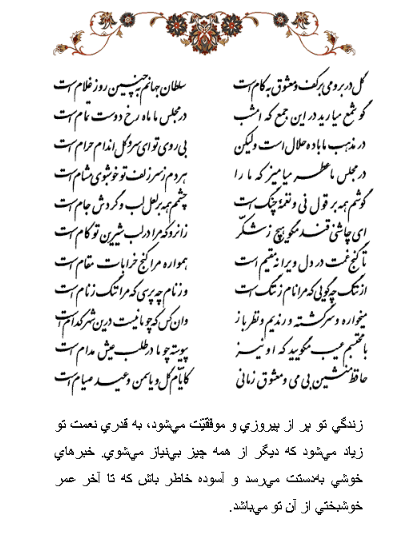 گل در بر و می بر کف و معشوق به کام است سلطان جهانم به چنین روز غلام است
گو شمع میارید در این جمع که امشب در مجلس ما ماه رخ دوست تمام است
در مذهب ما باده حلال است ولیکن بی روی تو ای سرو گل اندام حرام است
در مجلس ما عطر میامیز که ما را هر دم ز سر زلف تو خوشبوی مشام است
گوشم همه بر قول نی و نغمه چنگ است چشم همه بر لعل لب و گردش جام است
از چاشنی قند مگو هیچ ز شکر زان رو که مرا در لب شیرین تو کام است
تا گنج غمت در دل ویرانه مقیم است همواره مرا کنج خرابات مقام است
از ننگ چه گویی که مرا نام ز ننگ است وز نام چه پرسی که مرا ننگ ز نام است
میخواره و سرگشته و رندیم و نظرباز وان کس که چو ما نیست در این شهر کدام است
با محتسبم عیب مگویید که او نیز پیوسته چو ما در طلب عیش مدام است
حافظ منشین بی می و معشوق زمانی کایام گل و یاسمن و عید صیام است
زندگي تو پر از پيروزي و موفقيّت مي‌شود، به قدري نعمت تو
زياد مي‌شود كه ديگر از همه چيز بي‌نياز مي‌شوي. خبرهاي
خوشي به‌دستت مي‌رسد و آسوده خاطر باش كه تا آخر عمر
خوشبختي از آن تو مي‌باشد.